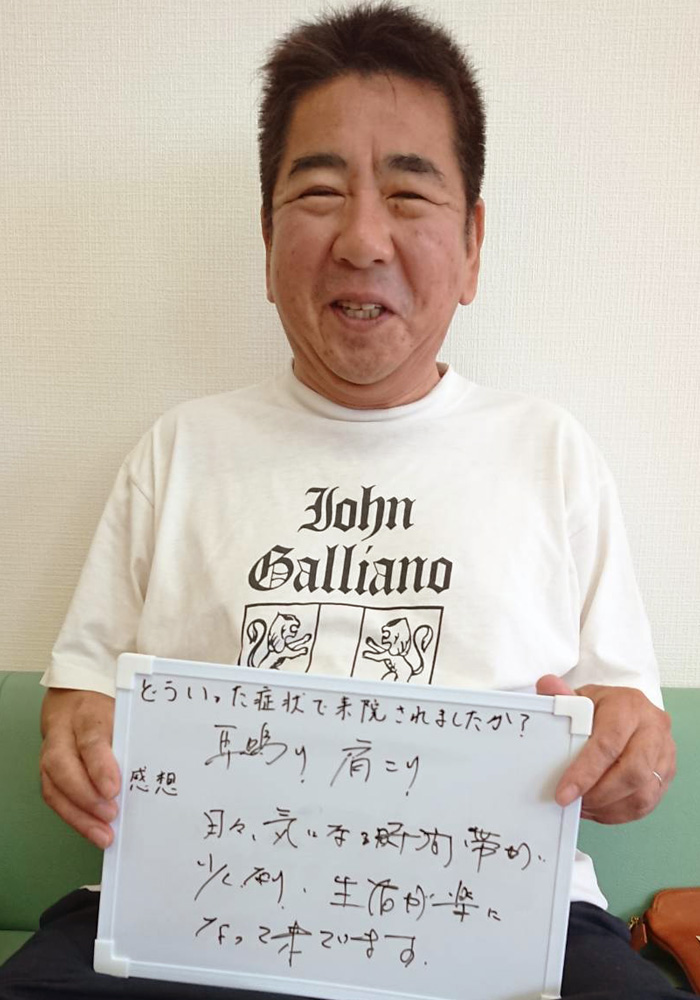 John
Galliano
どういった症状で来院されましたか?
耳鳴り 肩こり
感想
日々、気になる時間帯が
少く成り、生活が楽に
なって来ています。